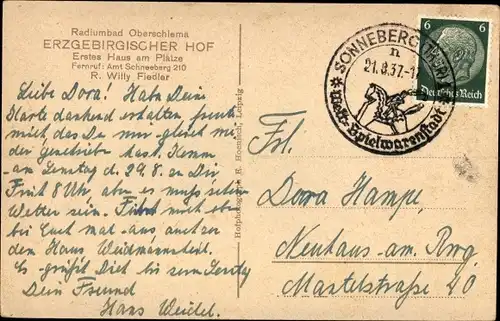 Radiumbad Oberschlema
ERZGEBIRGISCHER HOF
Erstes Haus am Platze
Fernruf: Amt Schneeberg 210
R. Willy Fiedler
Liebe Dora! Habe Deine
Karte dankend erhalten, freut
mich das Du mir gleich wieder
geschrieben hast. Komm
am Sonntag d. 29.8. zu Dir
Früh 8 Uhr, aber es muss schön
Wetter sein.
bei Euch mal
dem Hans
Es grüßt Dich bis zum Sonntag
Dein Freund
Hans
Hofphotograph R. Leipzig
SONNEBERG (THÜR)
n
21.8.37.-1
Welt-Spielwarenstadt
6 6
Deutsches Reich
Frl.
Dora Hampe,
Neuhaus am Rwg.
Martelstraße 20